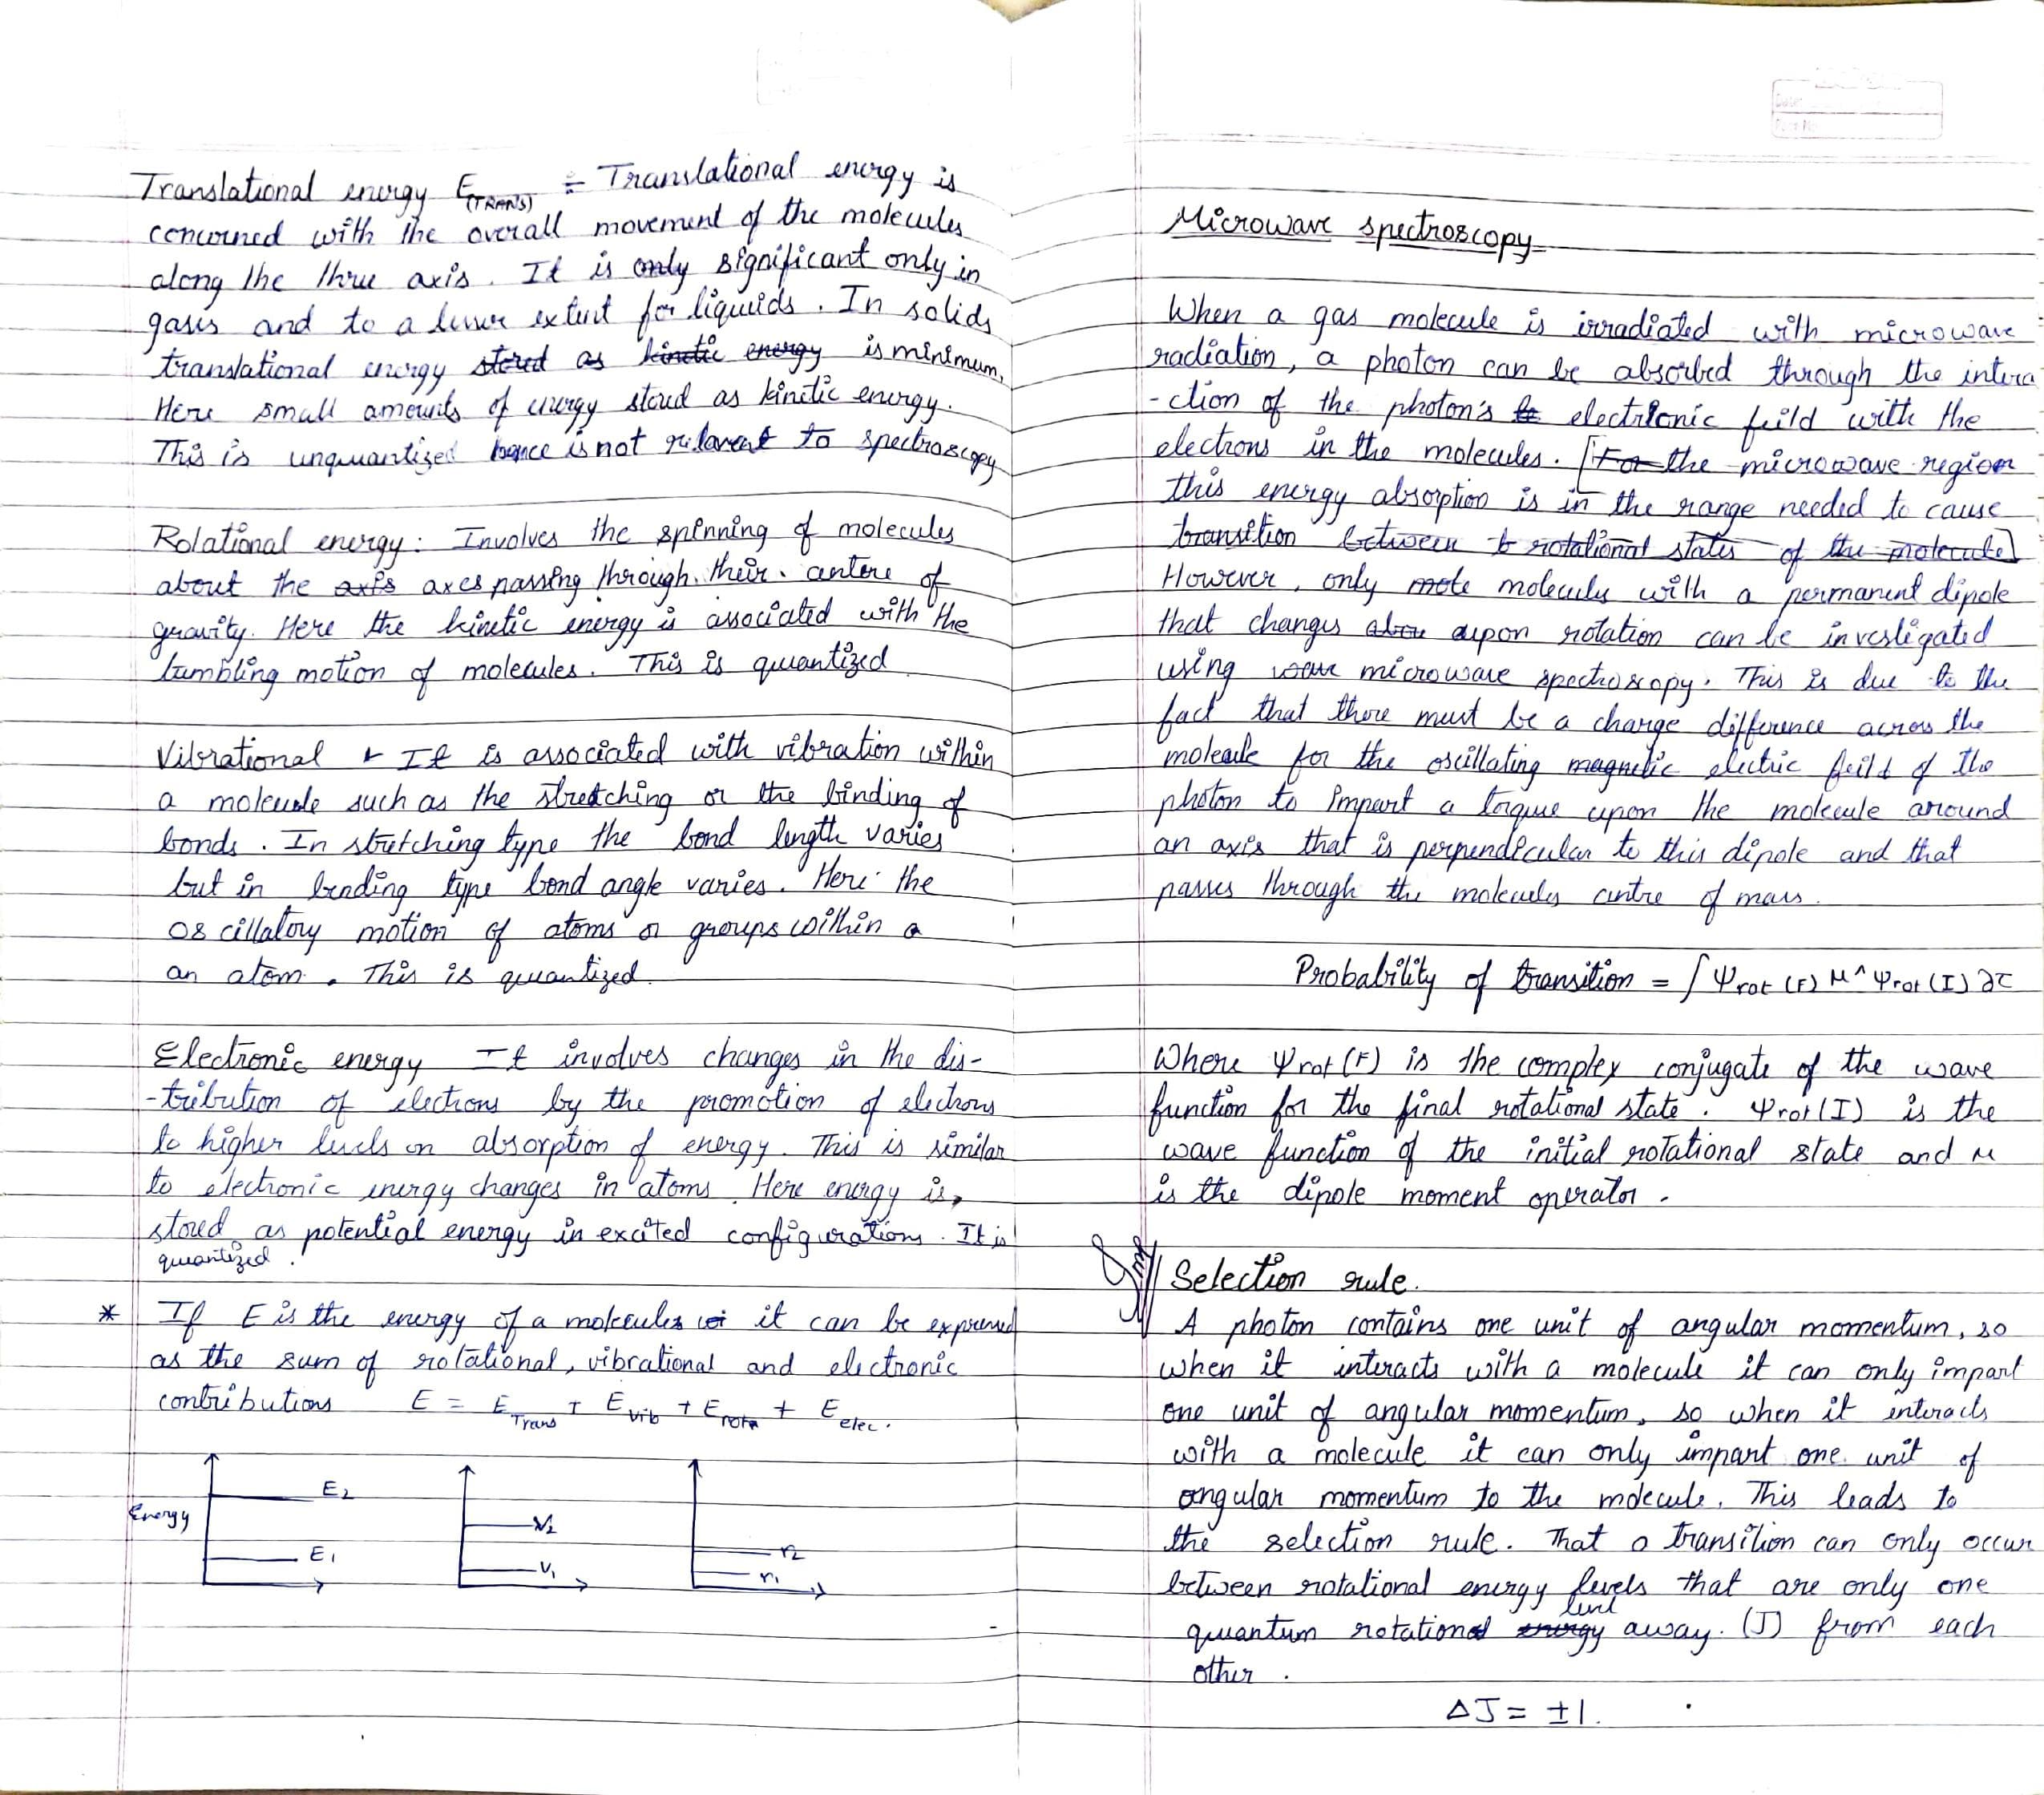 Translational energy E(TRANS) ÷ Translational energy is
concerned with the overall movement of the molecules
along the three axis. It is only significant only in
gases and to a lesser extent for liquids. In solids
translational energy stored as kinetic energy is minimum,
Here small amounts of energy stored as kinetic energy.
This is unquantized hence is not relavent to spectroscopy
Rotational energy: Involves the spinning of molecules
about the axis axes passing through their centere of
gravity. Here the kinetic energy is associated with the
tumbling motion of molecules. This is quantized
Vibrational It is associated with vibration within
a molecule such as the stretching or the binding of
bonds. In stretching type the bond length varies
but in binding type bond angle varies. Here the
oscillatory motion of atoms or groups within a
an atom. This is quantized
Electronic energy It involves changes in the dis-
-tribution of electrons by the promotion of electrons
to higher levels on absorption of energy. This is similar
to electronic energy changes in atoms. Here energy is,
stored as potential energy in excited configurations. It is
quantized.
* If E is the energy of a molecules it can be expressed
as the sum of rotational, vibrational and electronic
contributions E = E Trans + E vib + E rota + E elec.
Energy
E2
E1
V2
V1
r2
r1
Date:
Page No
Microwave spectroscopy
When a gas molecule is irradiated with microwave
radiation, a photon can be absorbed through the intera
-ction of the photon's electrionic feild with the
electrons in the molecules. [For the microwave region
this energy absorption is in the range needed to cause
transition between rotational states of the molecule]
However, only mole molecules with a permanent dipole
that changes upon rotation can be investigated
using microwave spectroscopy. This is due to the
fact that there must be a charge difference across the
molecule for the oscillating magnetic electric feild of the
photon to impart a torque upon the molecule around
an axis that is perpendicular to this dipole and that
passes through the molecules centre of mass.
Probability of transition = ∫ Ψrot (F) μ^ Ψrot (I) ∂τ
Where Ψrot (F) is the complex conjugate of the wave
function for the final rotational state. Ψrot (I) is the
wave function of the initial rotational state and μ
is the dipole moment operator.
Selection rule.
A photon contains one unit of angular momentum, so
when it interacts with a molecule it can only impart
one unit of angular momentum, so when it interacts
with a molecule it can only impart one unit of
angular momentum to the molecule. This leads to
the selection rule. That a transition can only occur
between rotational energy levels that are only one
quantum rotational energy level away. (J) from each
other.
ΔJ = ±1.